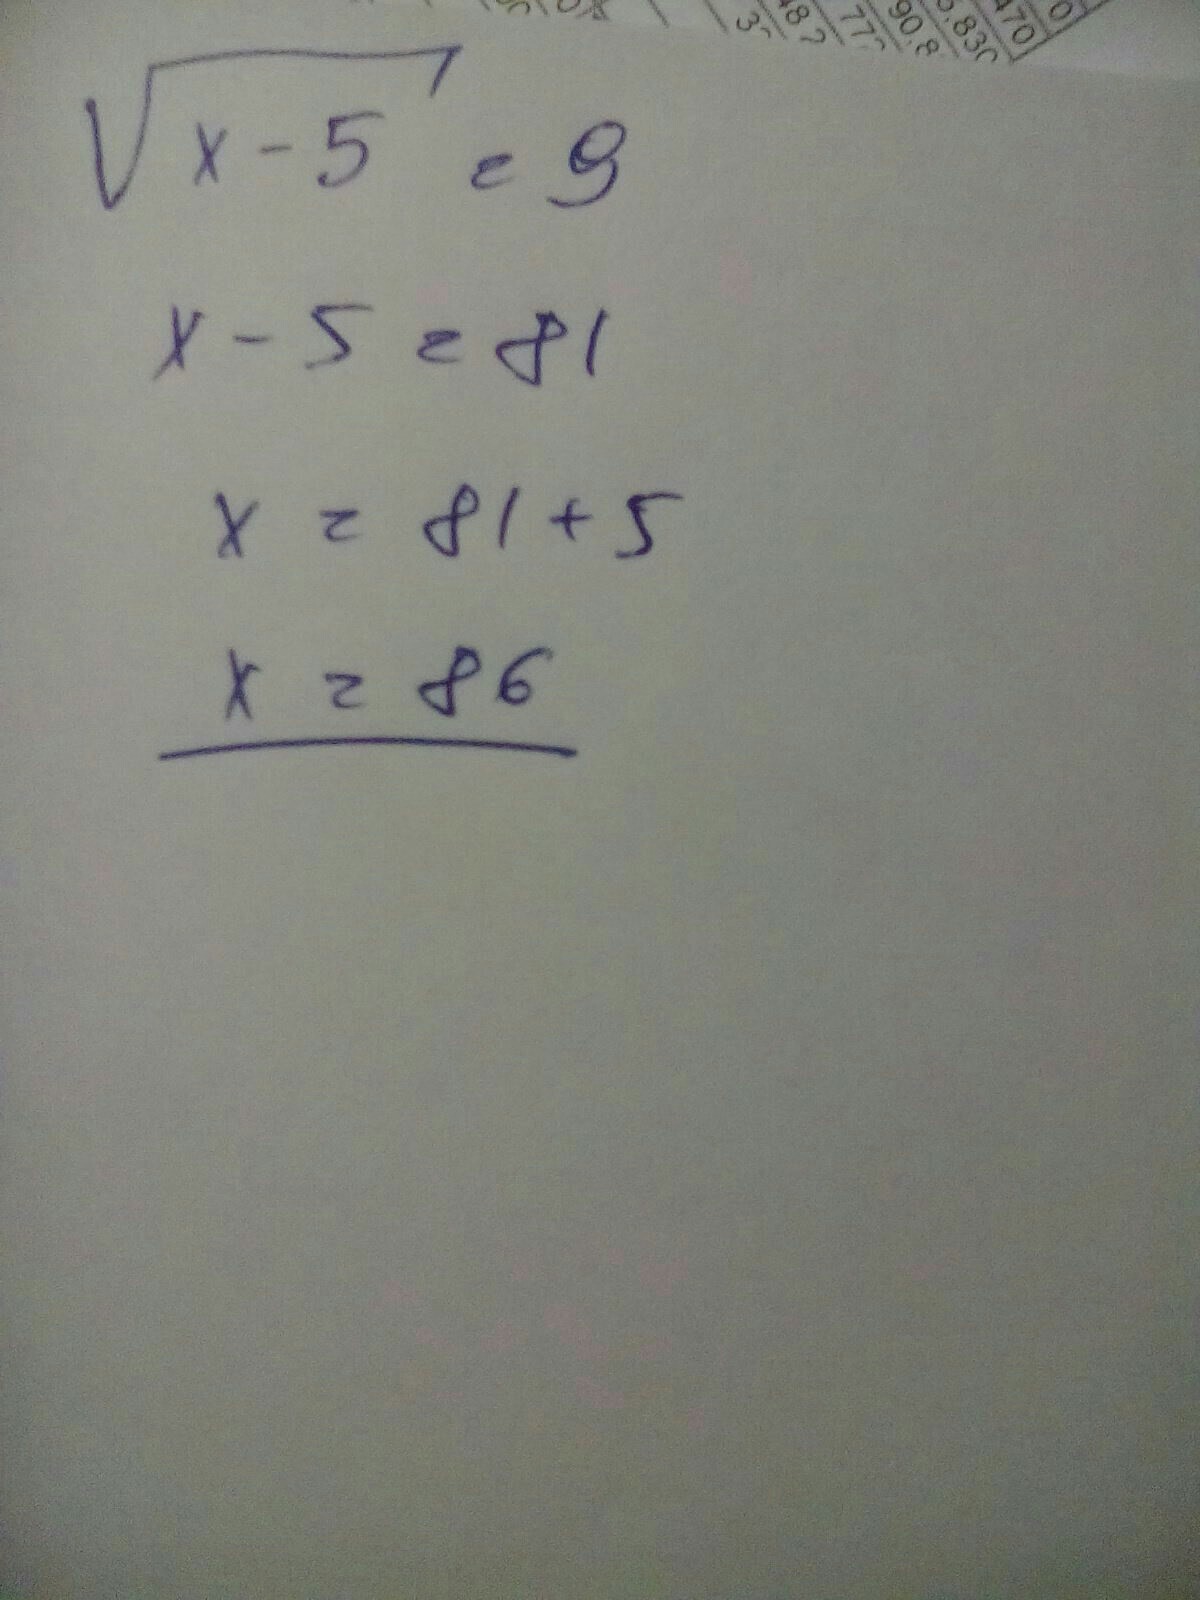 √x-5 = 9
x - 5 = 81
x = 81 + 5
x = 86